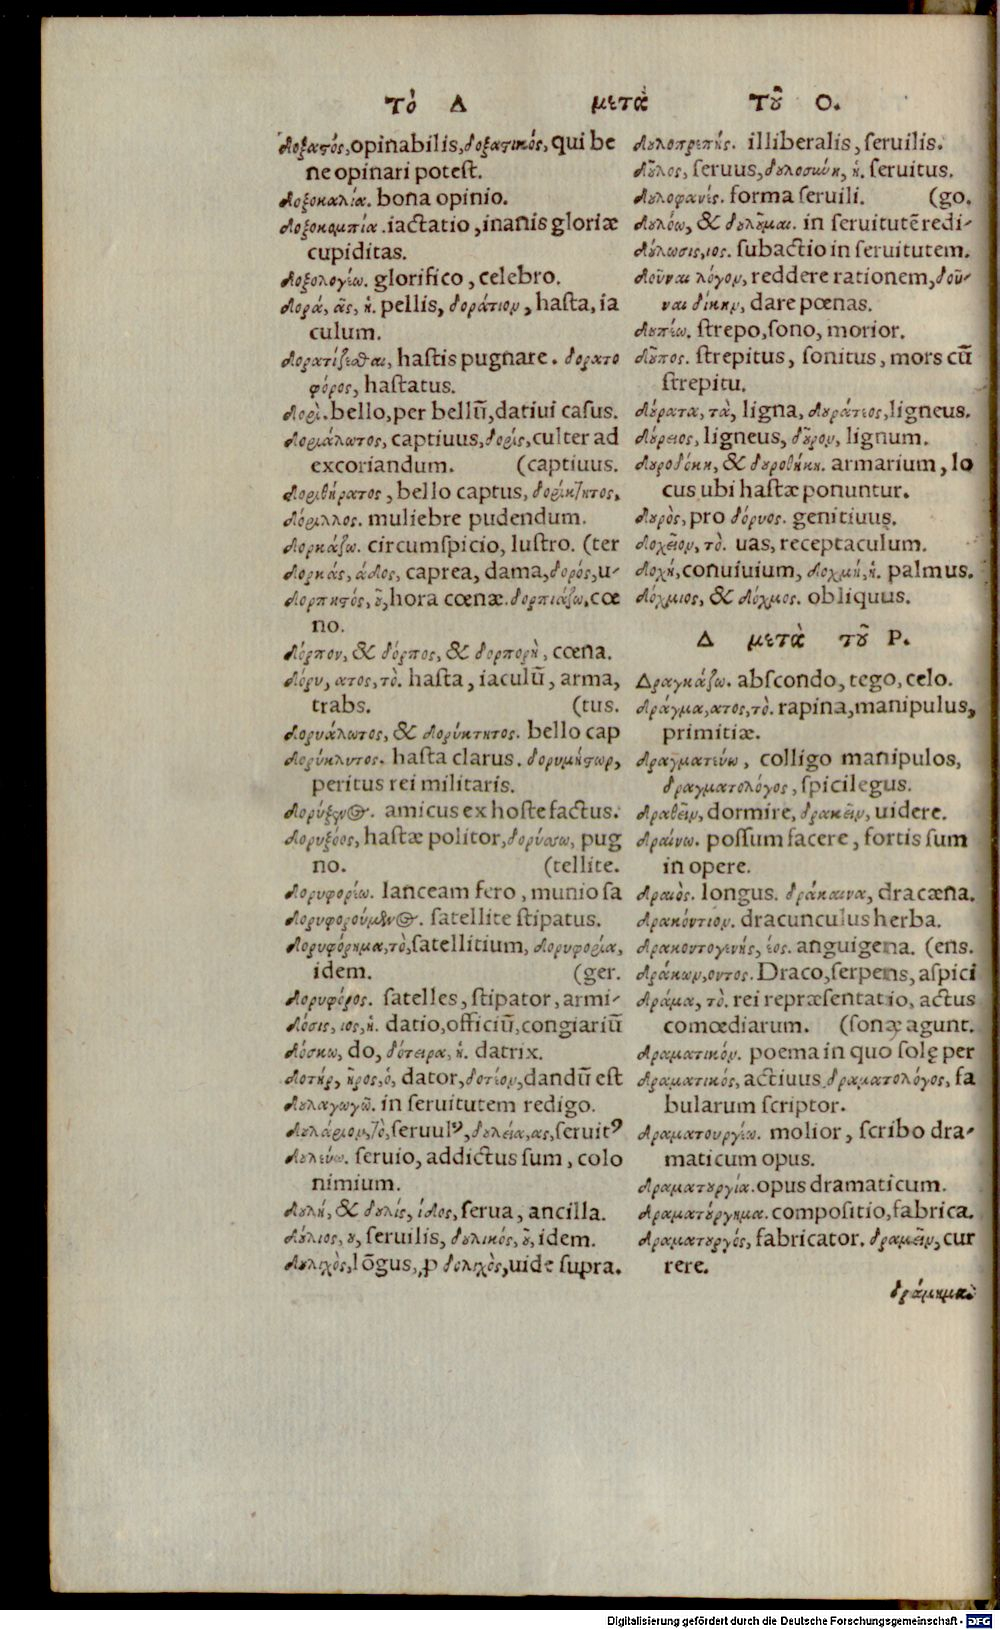 Τὸ Δ μετὰ Τοῦ Ο.
δοξαστός, opinabilis, δοξαστικός, qui be
ne opinari poteſt.
δοξοκαλία. bona opinio.
δοξοκομπία. iactatio, inanis gloriæ
cupiditas.
δοξολογέω. glorifico, celebro.
δορά, ᾶς, ἡ. pellis, δοράτιον, haſta, ia
culum.
δορατίζεσθαι, haſtis pugnare. δορατο
φόρος, haſtatus.
δορὶ. bello, per bellū, datiui caſus.
δοριάλωτος, captiuus, δορίς, culter ad
excoriandum. (captiuus.
δοριθήρατος, bello captus, δορίκτητος,
δόριλλος. muliebre pudendum.
δορκάζω. circumſpicio, luſtro. (ter
δορκάς, άδος, caprea, dama, δορός, u-
δορπηστός, οῦ, hora cœnæ. δορπιάζω, cœ
no.
δόρπον, & δόρπος, & δορπορὴ, cœna.
δόρυ, ατος, τὸ. haſta, iaculū, arma,
trabs. (tus.
δορυάλωτος, & δορύκτητος. bello cap
δορύκλυτος. haſta clarus. δορυμήστωρ,
peritus rei militaris.
δορύξενος. amicus ex hoſte factus.
δορυξόος, haſtæ politor, δορύσσω, pug
no. (tellite.
δορυφορέω. lanceam fero, munio ſa
δορυφορούμενος. ſatellite ſtipatus.
δορυφόρημα, τὸ, ſatellitium, δορυφορία,
idem. (ger.
δορυφόρος. ſatelles, ſtipator, armi-
δόσις, ιος, ἡ. datio, officiū, congiariū
δόσκω, do, δότειρα, ἡ. datrix.
δοτήρ, ῆρος, ὁ, dator, δοτέον, dandū eſt
δουλαγωγῶ. in ſeruitutem redigo.
δουλάριον, τὸ, ſeruulꝰ, δουλεία, ας, ſeruitꝰ
δουλεύω. ſeruio, addictus ſum, colo
nimium.
δουλή, & δουλίς, ίδος, ſerua, ancilla.
δούλιος, ου, ſeruilis, δουλικός, οῦ, idem.
δουλιχὸς, lōgus, ꝓ δολιχὸς, uide ſupra.
δουλοπρεπής. illiberalis, ſeruilis.
δοῦλος, ſeruus, δουλοσύνη, ἡ. ſeruitus.
δουλοφανές. forma ſeruili. (go.
δουλόω, & δουλοῦμαι. in ſeruitutē redi-
δούλωσις, ιος. ſubactio in ſeruitutem.
δοῦναι λόγον, reddere rationem, δοῦ-
ναι δίκην, dare pœnas.
δουπέω. ſtrepo, ſono, morior.
δοῦπος. ſtrepitus, ſonitus, mors cū
ſtrepitu.
δούρατα, τὰ, ligna, δουράτεος, ligneus.
δούρειος, ligneus, δοῦρον, lignum.
δουροδόκη, & δουροθήκη. armarium, lo
cus ubi haſtæ ponuntur.
δουρὸς, pro δόρυος. genitiuus.
δοχεῖον, τὸ. uas, receptaculum.
δοχή, conuiuium, δοχμή, ἡ. palmus.
δόχμιος, & δόχμος. obliquus.
Δ μετὰ τοῦ Ρ.
Δραγκάζω. abſcondo, tego, celo.
δράγμα, ατος, τὸ. rapina, manipulus,
primitiæ.
δραγματεύω, colligo manipulos,
δραγματολόγος, ſpicilegus.
δραθεῖν, dormire, δρακεῖν, uidere.
δραίνω. poſſum facere, fortis ſum
in opere.
δραιὸς. longus. δράκαινα, dracæna.
δρακόντιον. dracunculus herba.
δρακοντογενής, έος. anguigena. (ens.
δράκων, οντος. Draco, ſerpens, aſpici
δράμα, τὸ. rei repræſentatio, actus
comœdiarum. (ſonæ agunt.
δραματικόν. poema in quo ſolę per
δραματικός, actiuus δραματολόγος, fa
bularum ſcriptor.
δραματουργέω. molior, ſcribo dra-
maticum opus.
δραματουργία. opus dramaticum.
δραματούργημα. compoſitio, fabrica.
δραματουργός, fabricator. δραμεῖν, cur
rere.
δράμημα
Digitalisierung gefördert durch die Deutsche Forschungsgemeinschaft - DFG